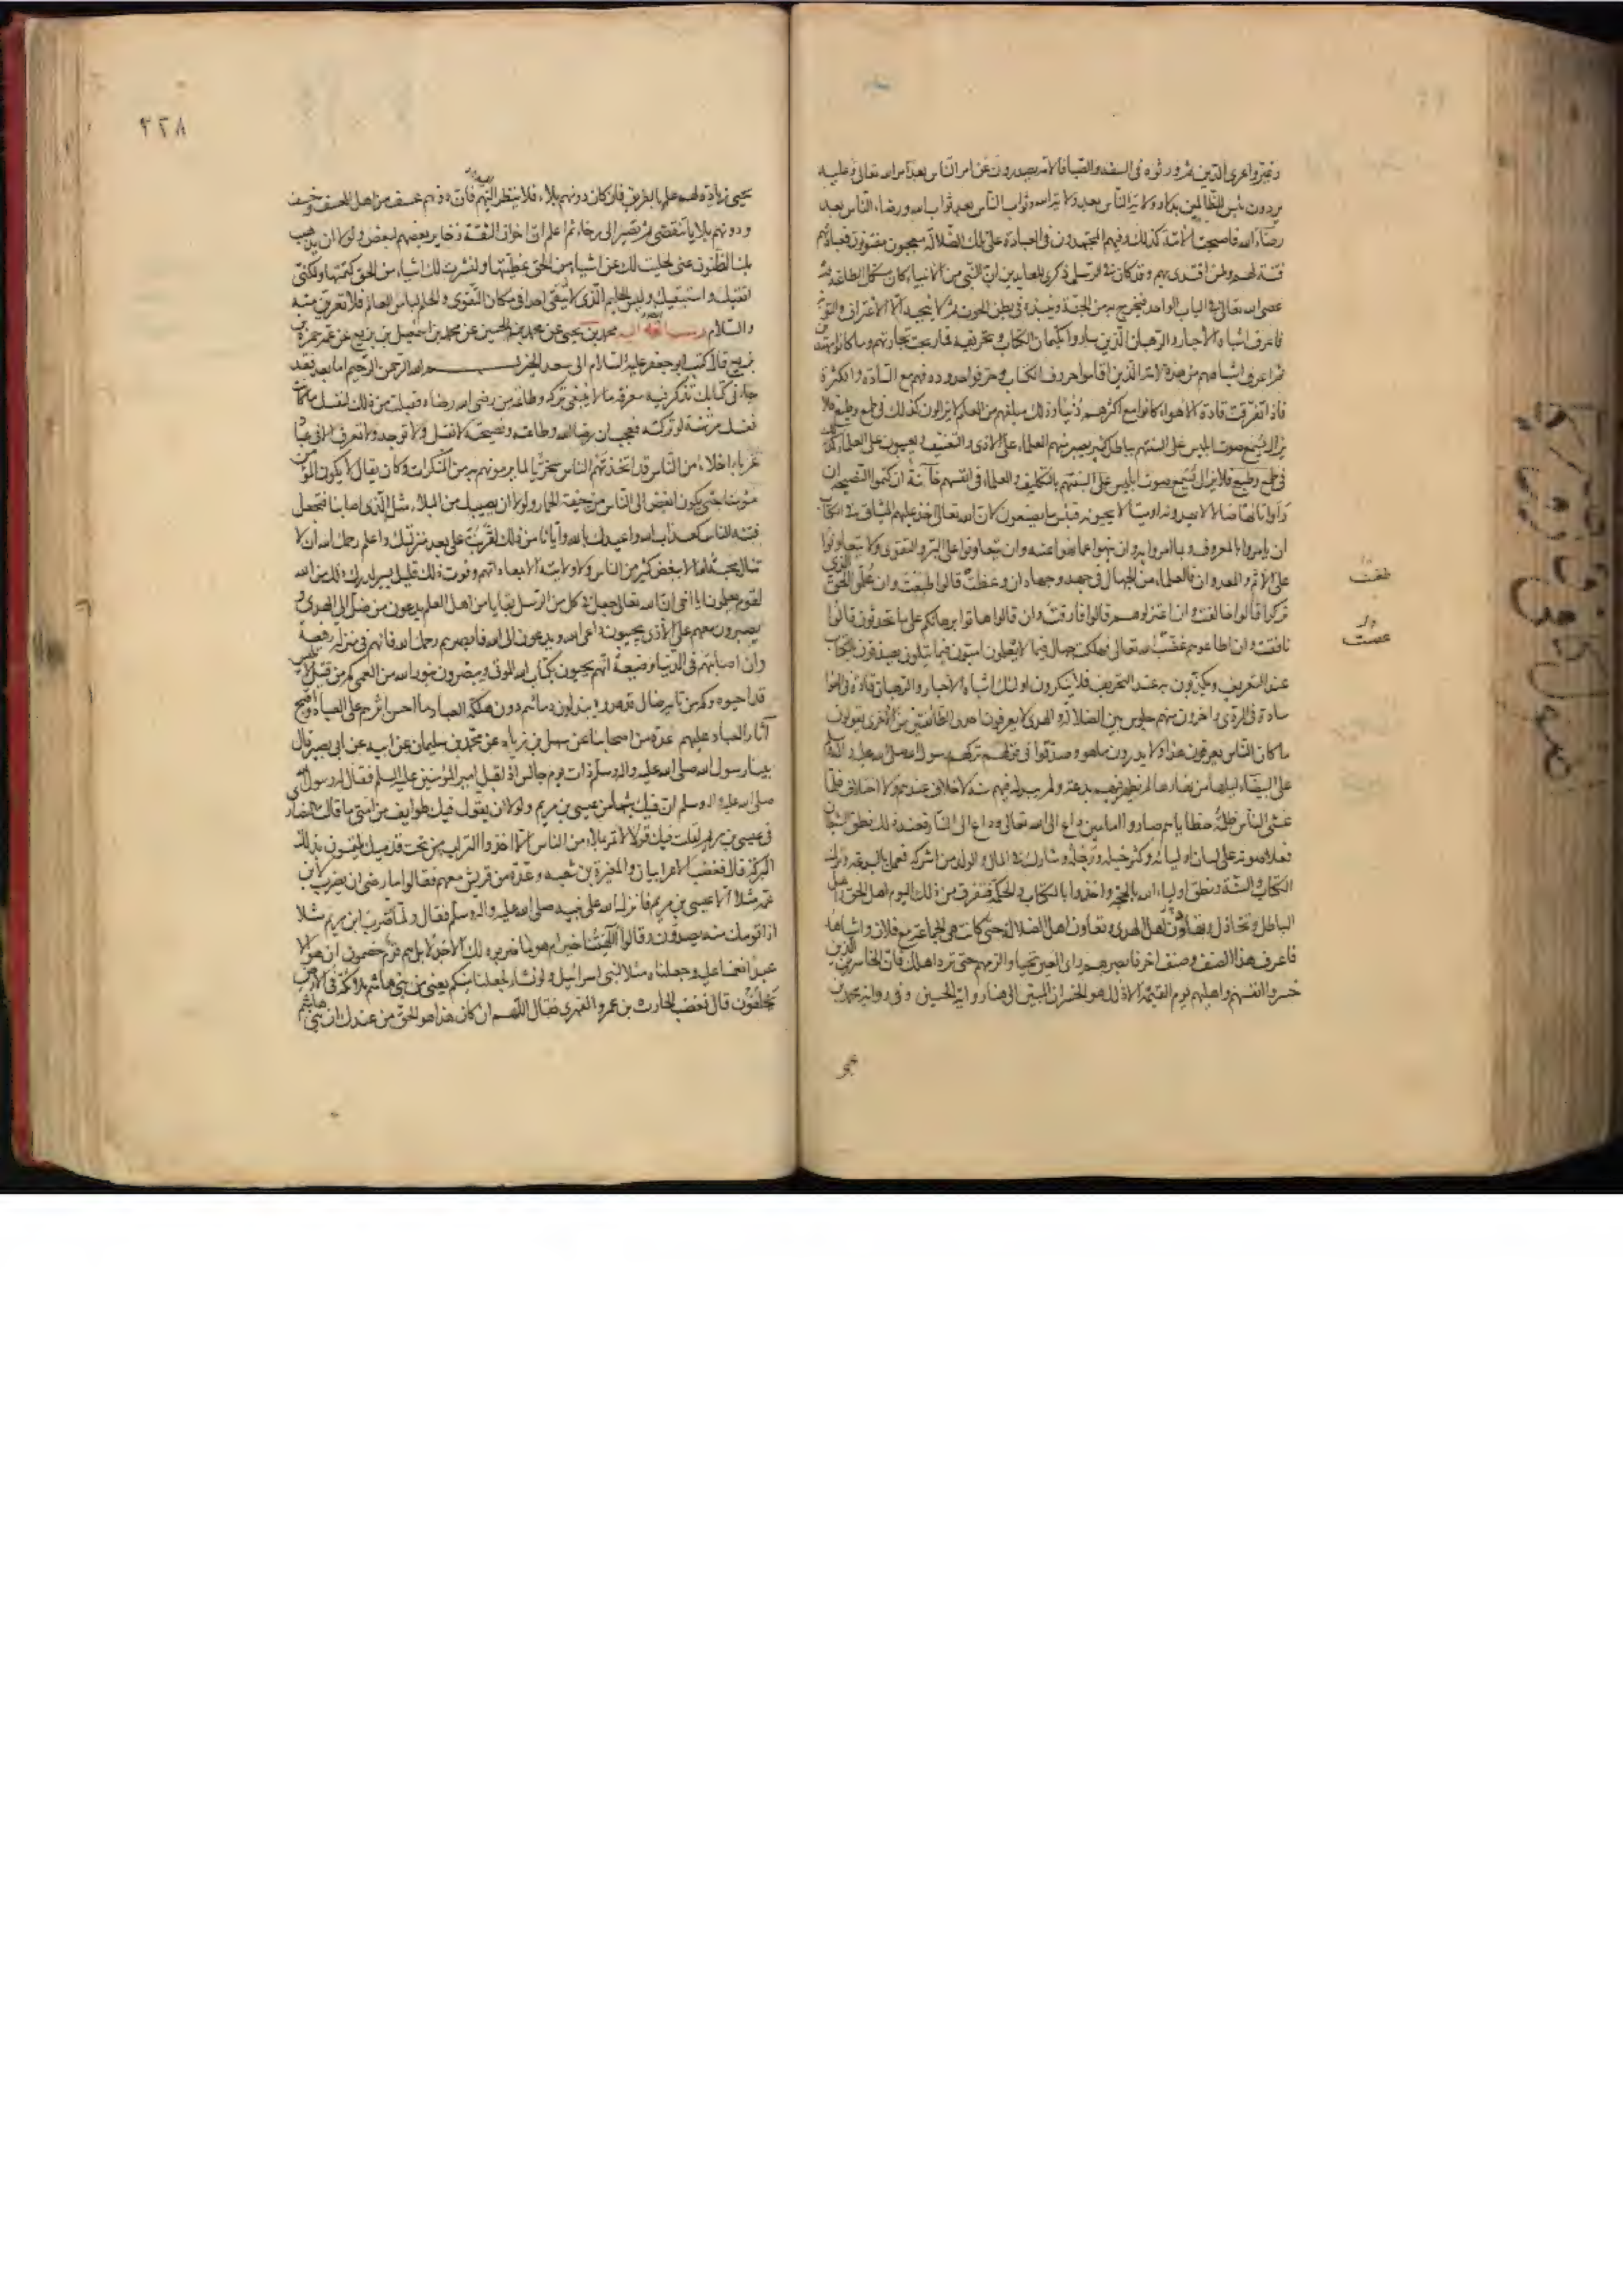 وغيروا عرى الدين ثم ورثوه في السفه والصبا فالامة يصدرون عن امر الناس بعد امر الله تعالى وعليه
يردون بئس للظالمين بدلا ولاية الناس بعد ولاية الله وثواب الناس بعد ثواب الله ورضاء الناس بعد
رضاء الله فاصبحت الامة كذلك وفيهم المجتهدون في العبادة على تلك الضلالة معجبون مفتونون فعبادتهم
فتنة لهم ولمن اقتدى بهم وقد كان في الرسل ذكرى للعابدين ان النبي من الانبياء كان يستكمل الطاعة ثم
عصى الله تعالى في الباب الواحد فيخرج به من الجنة وينبذ به في بطن الحوت ثم لا ينجيه الا الاعتراف والتوبة
فاعرف اشباه الاحبار والرهبان الذين ساروا بكتمان الكتاب وتحريفه فما ربحت تجارتهم وما كانوا مهتدين
ثم اعرف اشباههم من هذه الامة الذين اقاموا حروف الكتاب وحرفوا حدوده فهم مع السادة والكثرة
فاذا تفرقت قادة الاهواء كانوا مع اكثرهم دنيا وذلك مبلغهم من العلم لا يزالون كذلك في طمع وطبع فلا
يزال يسمع صوت ابليس على السنتهم بباطل كثير يصبر منهم العلماء على الاذى والتعنيف ويعيبون على العلماء
في طمع وطبع فلا يزال يسمع صوت ابليس على السنتهم بالتكليف والعلماء في انفسهم خانة ان كتموا النصيحة ان
راوا تائها ضالا لا يهدونه او ميتا لا يحيونه فبئس ما يصنعون لان الله تعالى اخذ عليهم الميثاق في الكتاب
ان يامروا بالمعروف وبما امروا به وان ينهوا عما نهوا عنه وان يتعاونوا على البر والتقوى ولا يتعاونوا
على الاثم والعدوان فالعلماء من الجهال في جهد وجهاد ان وعظت قالوا طغت وان علموا الحق الذي
تركوا قالوا خالفت وان اعتزلوهم قالوا فارقت وان قالوا هاتوا برهانكم على ما تحدثون قالوا
نافقت وان اطاعوهم عصت الله تعالى فهلك جهال فيما لا يعلمون اميون فيما يتلون يصدقون بالكتاب
عند التعريف ويكذبون به عند التحريف فلا ينكرون اولئك اشباه الاحبار والرهبان قادة في الهوى
سادة في الردى واخرون منهم جلوس بين الضلالة والهدى لا يعرفون احدى الطائفتين من الاخرى يقولون
ما كان الناس يعرفون هذا ولا يدرون ما هو وصدقوا تركهم رسول الله صلى الله عليه واله
على البيضاء ليلها من نهارها لم يظهر فيهم بدعة ولم يبدل فيهم سنة لا خلاف عندهم ولا اختلاف فلما
غشي الناس ظلمة خطاياهم صاروا امامين داع الى الله تعالى وداع الى النار فعند ذلك نطق الشيطان
فعلا صوته على لسان اوليائه وكثر خيله ورجله وشارك في المال والولد من اشركه فعمل بالبدعة وترك
الكتاب والسنة ونطق اولياء الله بالحجة واخذوا بالكتاب والحكمة فتفرق من ذلك اليوم اهل الحق واهل
الباطل وتخاذل وتهاون اهل الهدى وتعاون اهل الضلالة حتى كانت هي الجماعة مع فلان واشباهه
فاعرف هذا الصنف وصنف اخر فابصرهم راى العين تحيا والزمهم حتى ترد اهلك فان الخاسرين الذين
خسروا انفسهم واهليهم يوم القيمة الا ذلك هو الخسران المبين الى هنا رواية الحسين وفي رواية محمد بن
طغت
عصت
۲۲۸
يحيى زيادة لهم علم بالطريق فان كان دونهم بلاء فلا ينظر اليهم فان دونهم عسف من اهل العسف وخسف
ودونهم بلايا تنقضي ثم تصير الى رخاء ثم اعلم ان اخوان الثقة ذخاير بعضهم لبعض ولولا ان يذهب
بك الظنون عني لجليت لك عن اشياء من الحق غطيتها ولنشرت لك اشياء من الحق كتمتها ولكني
اتقيك واستبقيك وليس الحليم الذي لا يتقي احدا في مكان التقوى والحلم لباس العالم فلا تعرين منه
والسلام رسالة محمد بن يحيى عن محمد بن الحسين عن محمد بن اسمعيل بن بزيع عن عمه حمزة بن
بزيع قال كتب ابو جعفر عليه السلام الى سعد الخير بسم الله الرحمن الرحيم اما بعد فقد
جاءني كتابك تذكر فيه معرفة ما لا ينبغي تركه وطاعة من رضى الله رضاه فقبلت من ذلك لنفسك ما كانت
نفسك مرتهنة لو تركته فعجب ان رضا الله وطاعته ونصيحته لا تقبل ولا توجد ولا تعرف الا في عباد
غرباء اخلاء من الناس قد اتخذهم الناس سخريا لما يرمونهم به من المنكرات وكان يقال لا يكون المؤمن
مؤمنا حتى يكون ابغض الى الناس من جيفة الحمار ولولا ان يصيبك من البلاء مثل الذي اصابنا فتجعل
فتنة الناس كعذاب الله واعيذك بالله وايانا من ذلك لقربت على بعد منزلتك واعلم رحمك الله ان لا
تنال محبة الله الا ببغض كثير من الناس ولا ولايته الا بمعاداتهم وفوت ذلك قليل يسير لدرك ذلك من الله
لقوم يعلمون يا اخي ان الله تعالى جعل في كل من الرسل بقايا من اهل العلم يدعون من ضل الى الهدى و
يصبرون معهم على الاذى يجيبون داعي الله ويدعون الى الله فابصرهم رحمك الله فانهم في منزلة رفيعة
وان اصابتهم في الدنيا وضيعة انهم يحيون بكتاب الله الموتى ويبصرون بنور الله من العمى كم من قتيل لابليس
قد احيوه وكم من تايه ضال قد هدوه يبذلون دمائهم دون هلكة العباد ما احسن اثرهم على العباد واقبح
آثار العباد عليهم عدة من اصحابنا عن سهل بن زياد عن محمد بن سليمان عن ابيه عن ابي بصير قال
بينا رسول الله صلى الله عليه واله وسلم ذات يوم جالس اذ اقبل امير المؤمنين عليه السلم فقال له رسول الله
صلى الله عليه واله وسلم ان فيك شبها من عيسى بن مريم ولولا ان يقول فيك طوايف من امتي ما قالت النصارى
في عيسى بن مريم لقلت فيك قولا لا تمر بملاء من الناس الا اخذوا التراب من تحت قدميك يلتمسون بذلك
البركة قال فغضب الاعرابيان والمغيرة بن شعبة وعدة من قريش معهم فقالوا ما رضي ان يضرب لابن
عمه مثلا الا عيسى بن مريم فانزل الله على نبيه صلى الله عليه واله وسلم فقال ولما ضرب ابن مريم مثلا
اذا قومك منه يصدون وقالوا أآلهتنا خير ام هو ما ضربوه لك الا جدلا بل هم قوم خصمون ان هو الا
عبد انعمنا عليه وجعلناه مثلا لبني اسرائيل ولو نشاء لجعلنا منكم يعني من بني هاشم ملائكة في الارض
يخلفون قال فغضب الحارث بن عمرو الفهري فقال اللهم ان كان هذا هو الحق من عندك ان بني هاشم